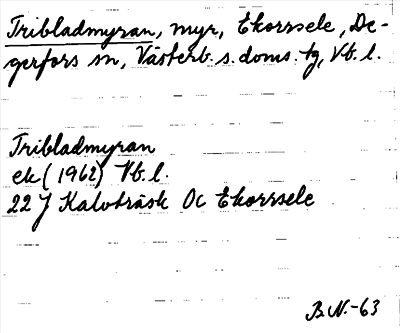 Tribladmyran, myr, Ekorrsele, De-
gerfors sn, Västerb. s. doms. tg, Vb. l.
Tribladmyran
ek (1962) Vb. l.
22 J Kalvträsk Oc Ekorrsele
B.N.-63